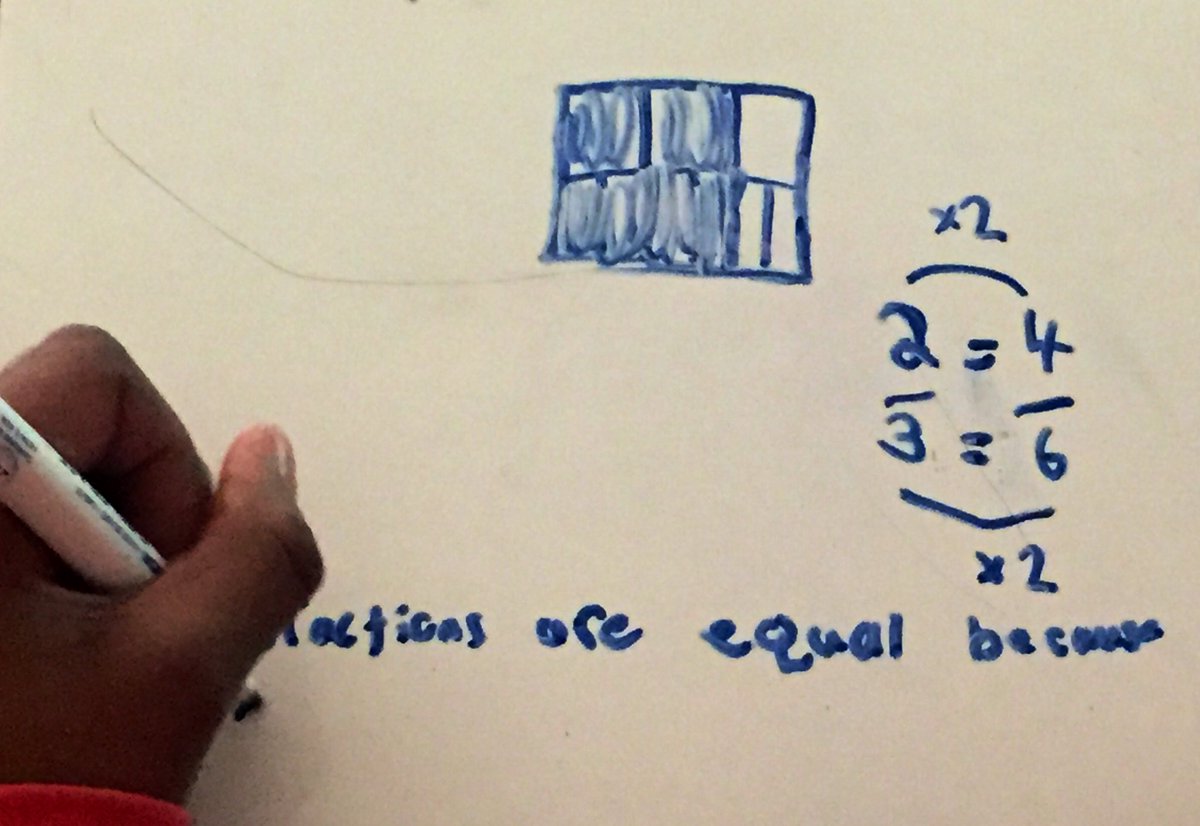 x2
2 = 4
3 = 6
x2
ractions are equal because